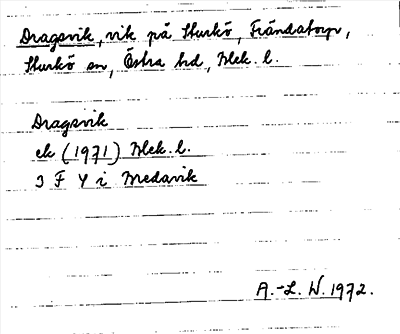 Dragsvik, vik på Sturkö, Frändatorp,
Sturkö sn, Östra hd, Blek. l.
Dragsvik
ek (1971) Blek. l.
3 F Y i Medavik
A.-L. W. 1972.